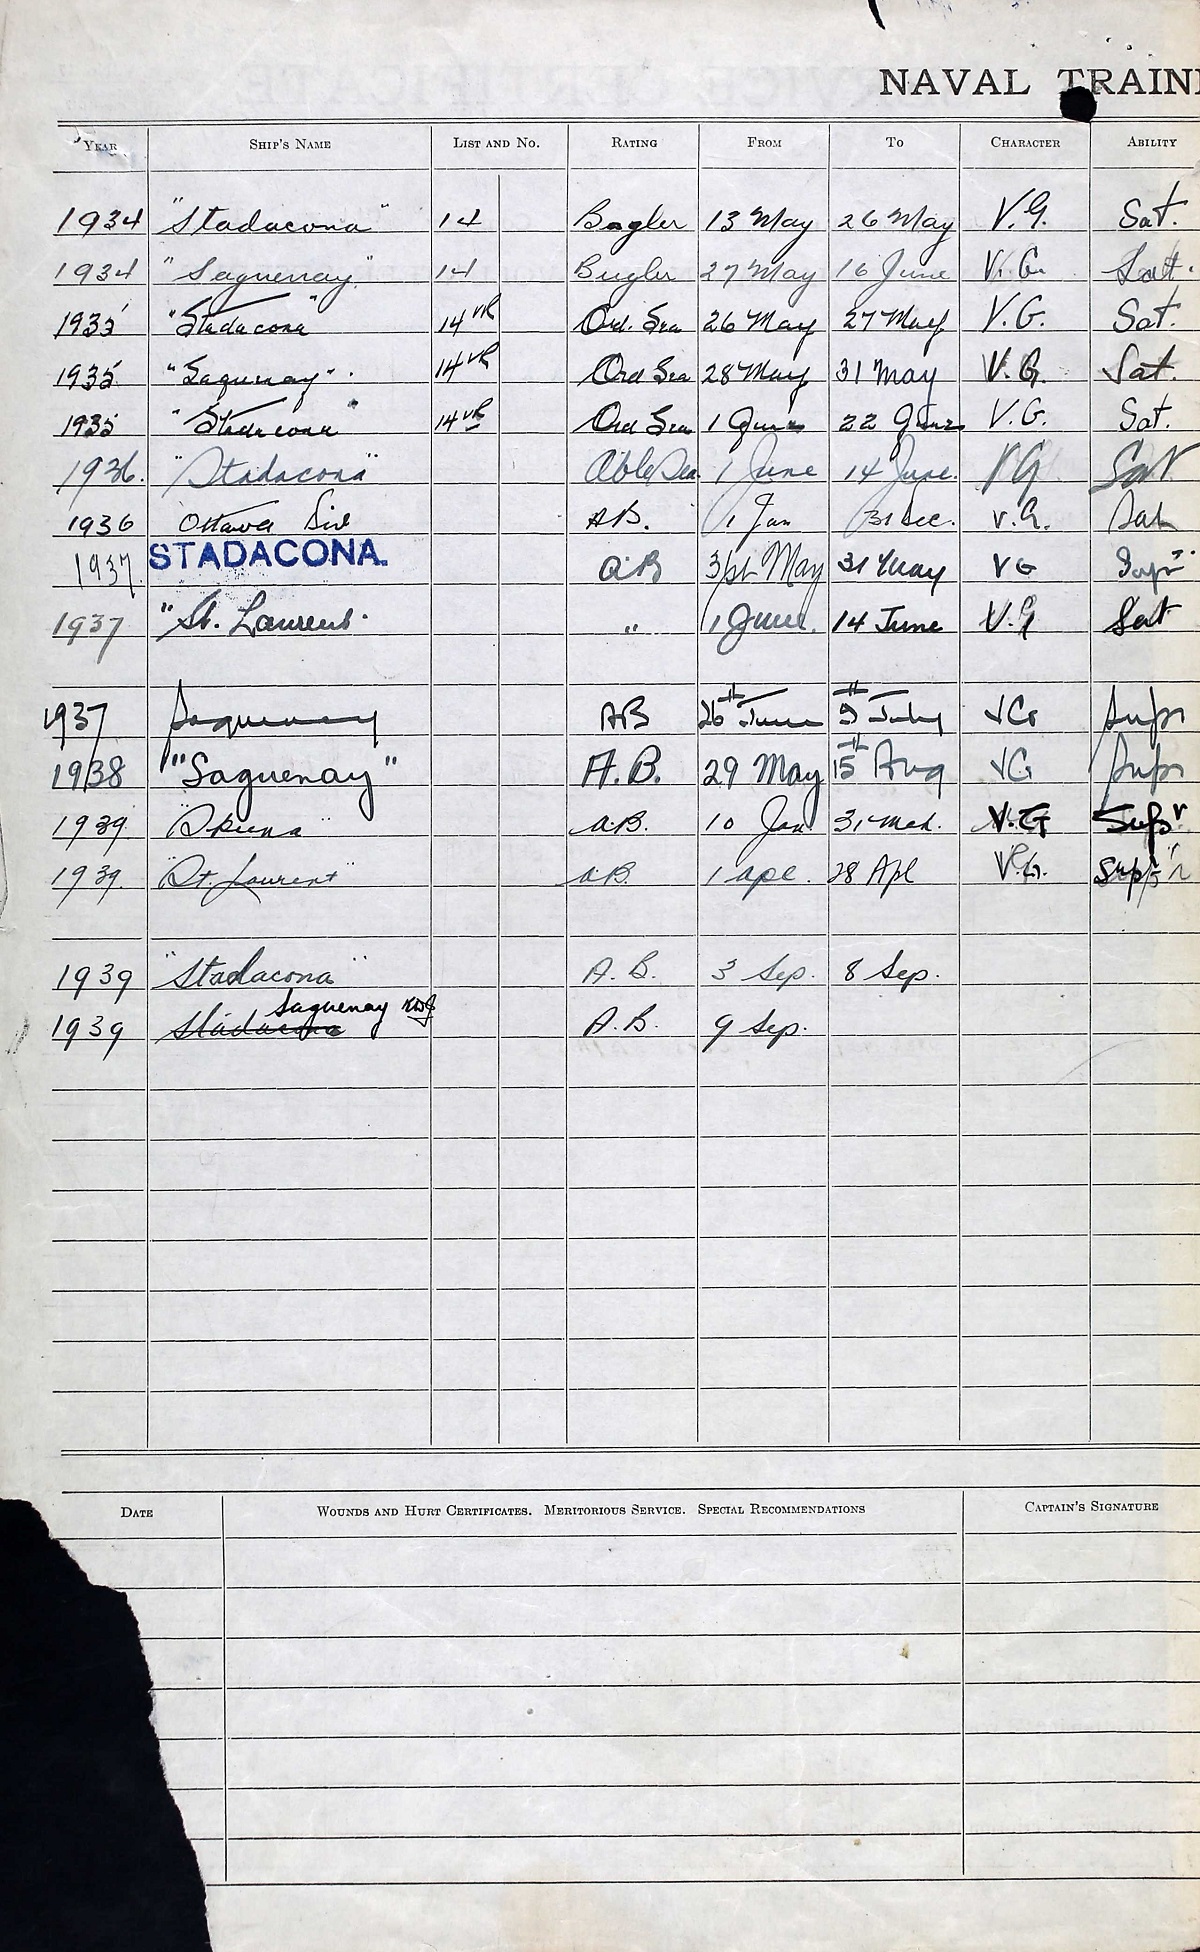 NAVAL TRAINI
YEAR SHIP'S NAME LIST AND NO. RATING FROM TO CHARACTER ABILITY
1934 "Stadacona" 14 Bugler 13 May 26 May V.G. Sat.
1934 "Saguenay" 14 Bugler 27 May 16 June V.G. Sat.
1935 "Stadacona" 14 VR Ord. Sea 26 May 27 May V.G. Sat.
1935 "Saguenay" 14 VR Ord Sea 28 May 31 May V.G. Sat.
1935 "Stadacona 14 VR Ord Sea 1 June 22 June V.G. Sat.
1936. "Stadacona" Able Sea 1 June 14 June. VG Sat
1936 Ottawa Div AB. 1 Jan 31 Dec. V.G. Sat
1937. STADACONA. AB May 31 May VG Supr
1937 "St. Laurent. " 1 June. 14 June V.G Sat
1937 Saguenay AB 26th June 9th July VG Supr
1938 "Saguenay" A.B. 29 May 15th Aug VG Supr
1939 "Skeena" AB. 10 Jan 31 Mch. V.G Supr
1939. "St. Laurent" AB. 1 Apl. 28 Apl V.G. Supr
1939 "Stadacona" A.B. 3 Sep. 8 Sep.
Saguenay
1939 Stadacona A.B. 9 Sep.
DATE WOUNDS AND HURT CERTIFICATES. MERITORIOUS SERVICE. SPECIAL RECOMMENDATIONS CAPTAIN'S SIGNATURE